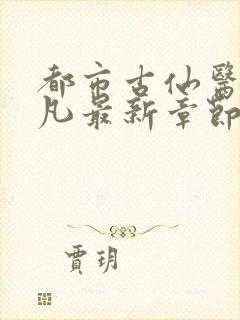 都市古仙醫
凡最新章節
賈玥